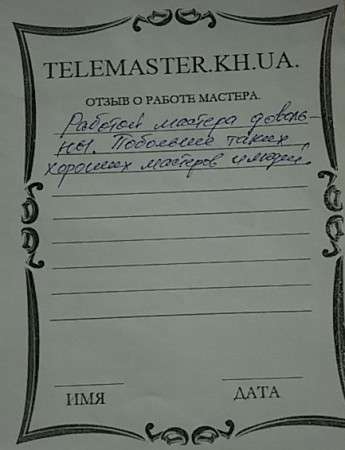 TELEMASTER.KH.UA.
ОТЗЫВ О РАБОТЕ МАСТЕРА.
Работой мастера доволь-
ны. Побольше таких
хороших мастеров и людей.
ИМЯ
ДАТА